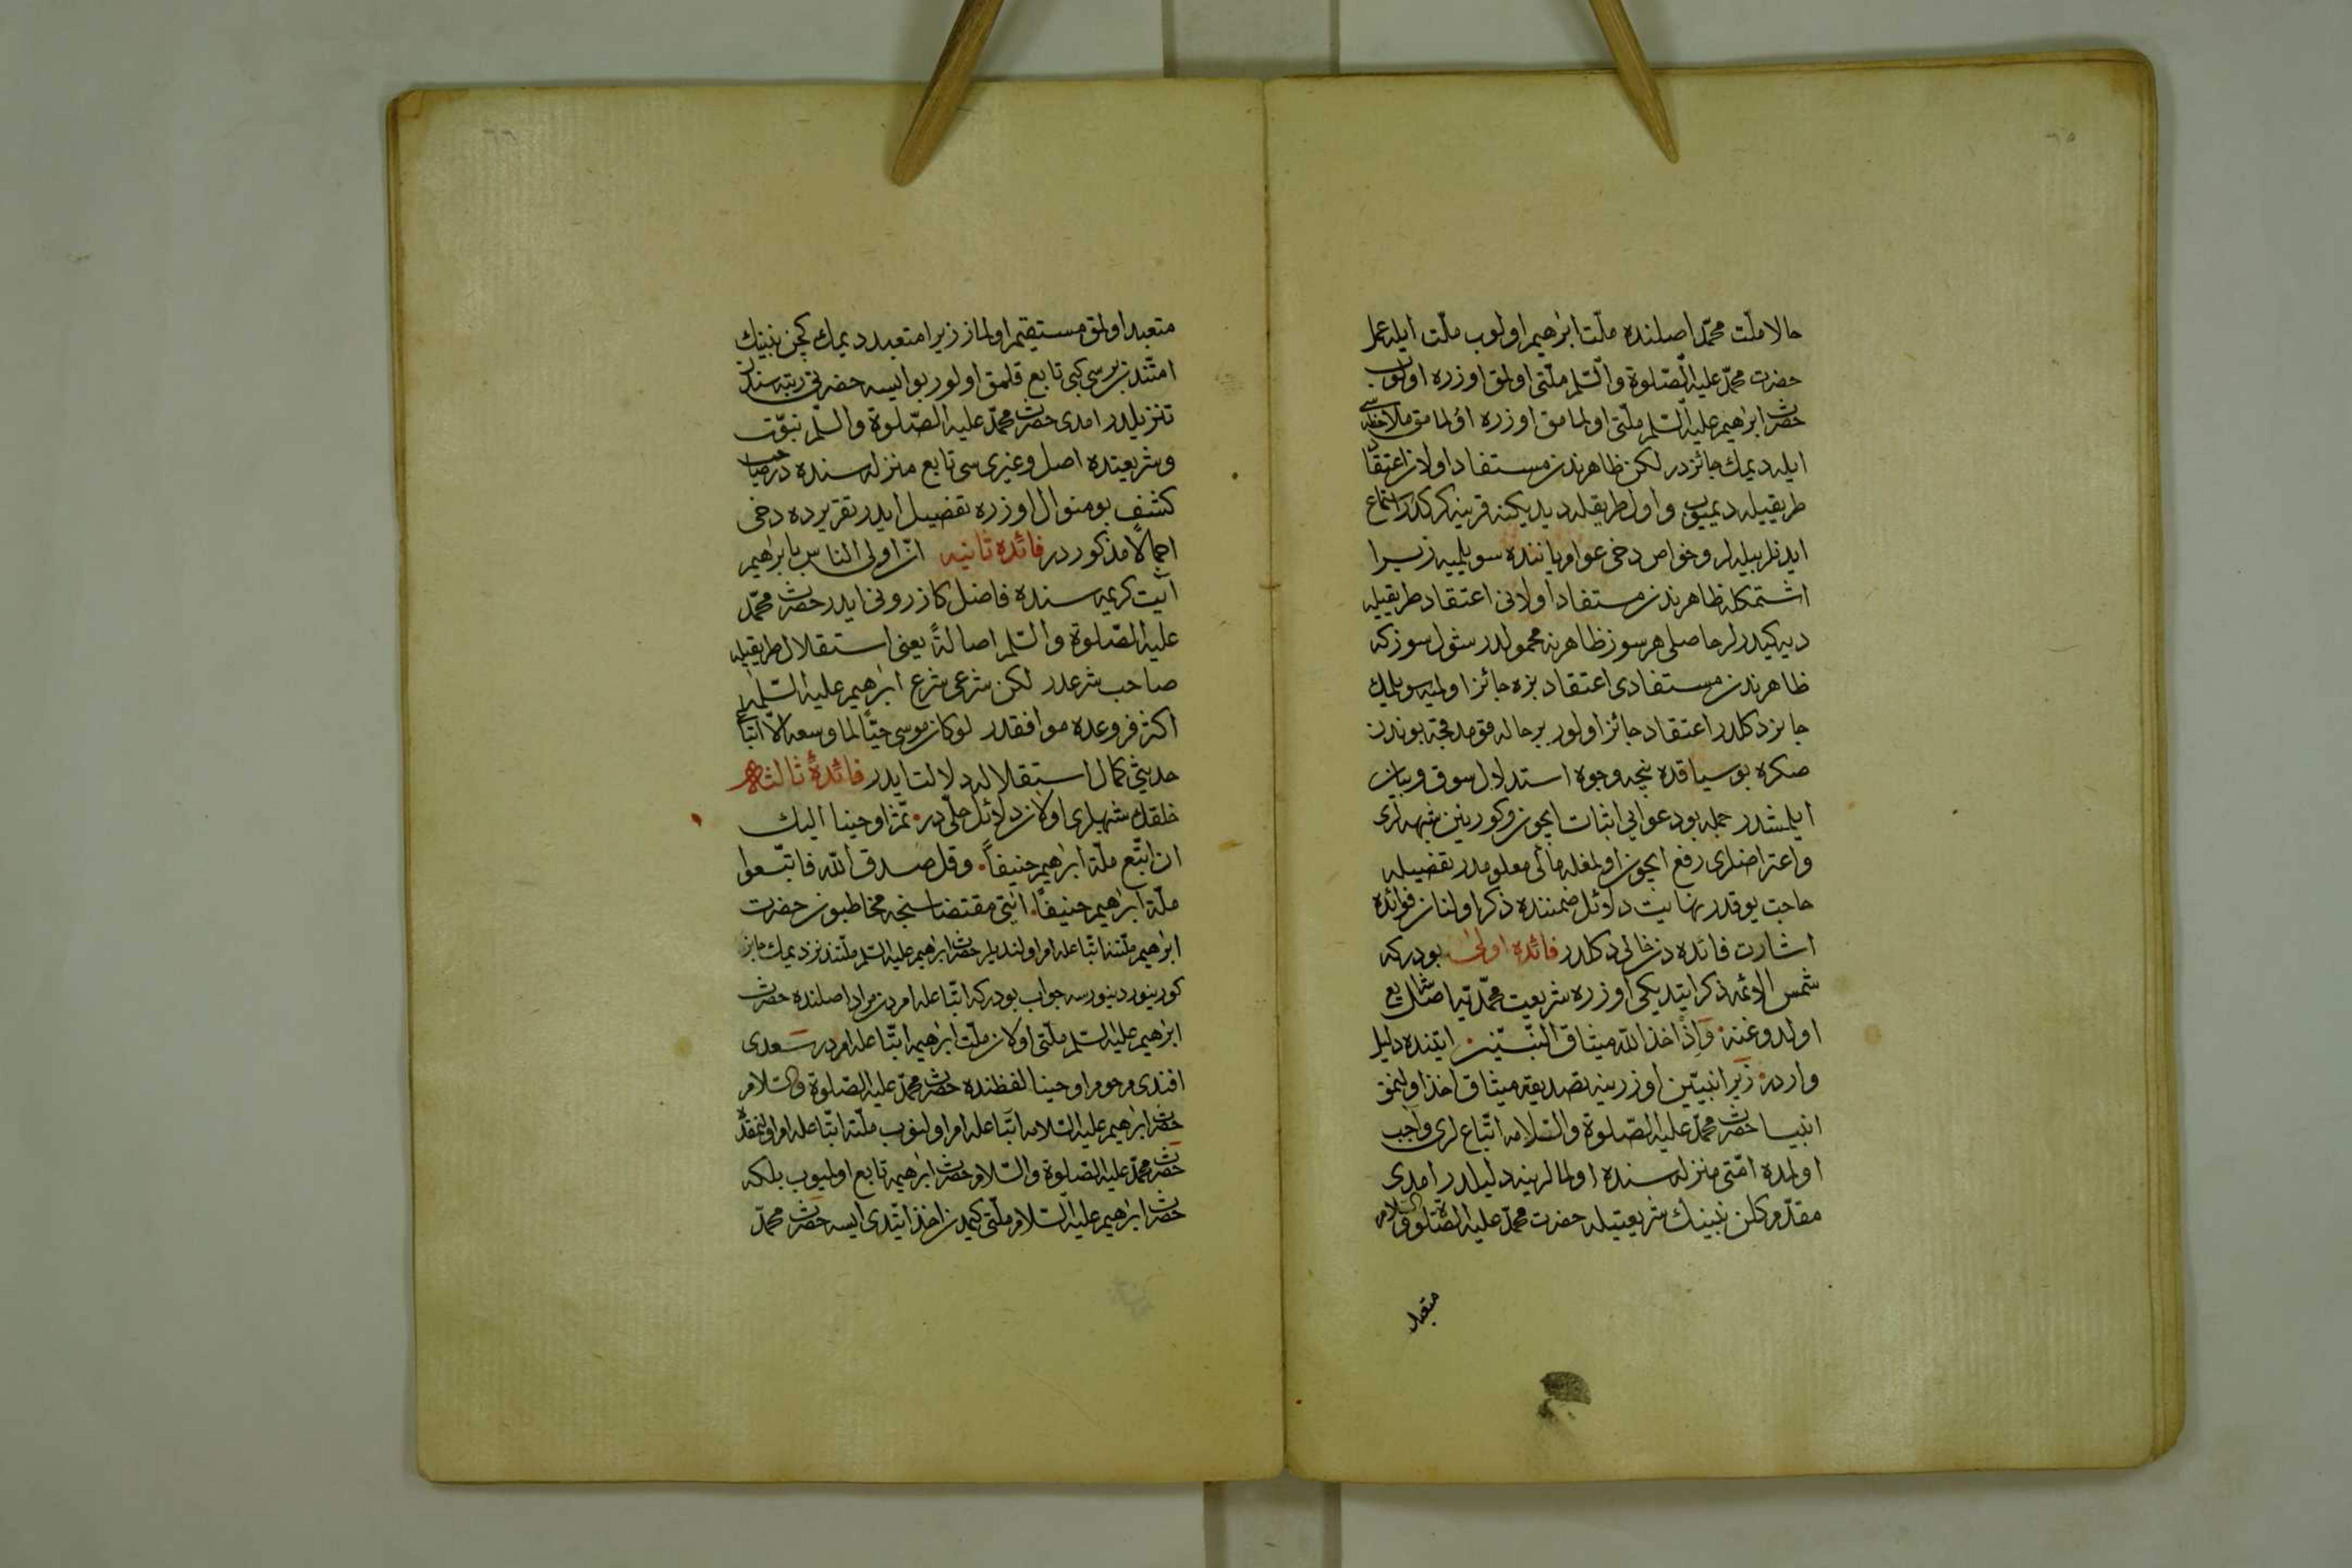 ٦٥
حالا ملّت محمّد اصلنده ملّت ابرٰهیم اولوب ملّت ایله عمل
حضرت محمّد علیه الصّلوة والسّلم ملّتی اولمق اوزره اولوب
حضرت ابرٰهیم علیه السّلم ملّتی اولمامق اوزره اولمامق ملاحظه سی
ایله دیمك جائزدر لکن ظاهرندن مستفاد اولان اعتقاد
طریقیله دیمیوب واول طریقله دیدیکنه قرینه کرکدر استماع
ایدنلر بیله لر وخواص دخی عوام یاننده سویلمیه زیرا
اشتمکله ظاهرندن مستفاد اولانی اعتقاد طریقیله
دیه کیدرلر حاصلی هر سوز ظاهرینه محمولدر شول سوز که
ظاهرندن مستفادی اعتقاد بزه جائز اولمیه سویلمك
جایز دکلدر اعتقاد جائز اولور بر حاله قومدقجه بوندن
صکره بوسیاقده نیچه وجوه استدلال سوق وبیان
ایلمشدر جمله بو دعوایی اثبات ایچون وکورینن شبهه لری
واعتراضلری رفع ایچون اولمغله مألی معلومدر تفصیله
حاجت یوقدر نهایت دلائل ضمننده ذکر اولنان فوائده
اشارت فائده دن خالی دکلدر فائدۀ اولی بودرکه
شمس الائمه ذکر ایتدیکی اوزره شریعت محمّدیّه اصل شرایع
اولدوغنه وَاِذْ اخذ اللّٰه میثاق النّبیّین ایتنده دلیل
وارد زیرا نبیّین اوزرینه تصدیقه میثاق اخذ اولنمق
انبیا حضرت محمّد علیه الصّلوة والسّلامه اتّباعلری واجب
اولمده امّتی منزله سنده اولمالرینه دلیلدر امدی
مقدّم کلن نبینك شریعتیله حضرت محمّد علیه الصّلوة والسّلام
متعبد
٦٦
متعبد اولمق مستقیم اولماز زیرا متعبددر دیمك کچن نبینك
امّتندن برسی کبی تابع قلمق اولور بو ایسه حضرتی رتبه سندن
تنزیلدر امدی حضرت محمّد علیه الصّلوة والسّلم نبوّت
وشریعتده اصل وغیری سی تابع منزله سنده در صاحب
کشف بو منوال اوزره تفضیل ایدر تقریرده دخی
اجمالاً مذکوردر فائده ثانیه انّ اولی الناس بابرٰهیم
آیت کریمه سنده فاضل کازرونی ایدر حضرت محمّد
علیه الصّلوة والسّلم اصالةً یعنی استقلال طریقیله
صاحب شرعدر لکن شرعی شرع ابرٰهیم علیه السّلمله
اکثر فروعده موافقدر لوکان موسی حیّاً لما وسعه الّا اتّباعی
حدیثی کمال استقلاله دلالت ایدر فائدۀ ثالثه
خلقك شبهلری اولان دلائل حلّی در ثمّ اوحینا الیك
ان اتّبع ملّة ابرٰهیم حنیفاً وقل صدق اللّٰه فاتّبعوا
ملّة ابرٰهیم حنیفاً ایتی مقتضاسنجه مخاطبون حضرت
ابرٰهیم ملّتنه اتّباعله امر اولندیلر حضرت ابرٰهیم علیه السّلم ملّتندنز دیمك جایز
کورینور دینورسه جواب بودرکه اتّباعله امردن مراد اصلنده حضرت
ابرٰهیم علیه السّلم ملّتی اولان ملّت ابرٰهیمه اتّباعله امردر سعدی
افندی مرحوم اوحینا لفظنده حضرت محمّد علیه الصّلوة والسّلام
حضرت ابرٰهیم علیه السّلامه اتّباعله امر اولنیوب ملّتنه اتّباعله امر اولنمقده
حضرت محمّد علیه الصّلوة والسّلام حضرت ابرٰهیمه تابع اولمیوب بلکه
حضرت ابرٰهیم علیه السّلام ملّتی کیمدن اخذ ایتدی ایسه حضرت محمّد